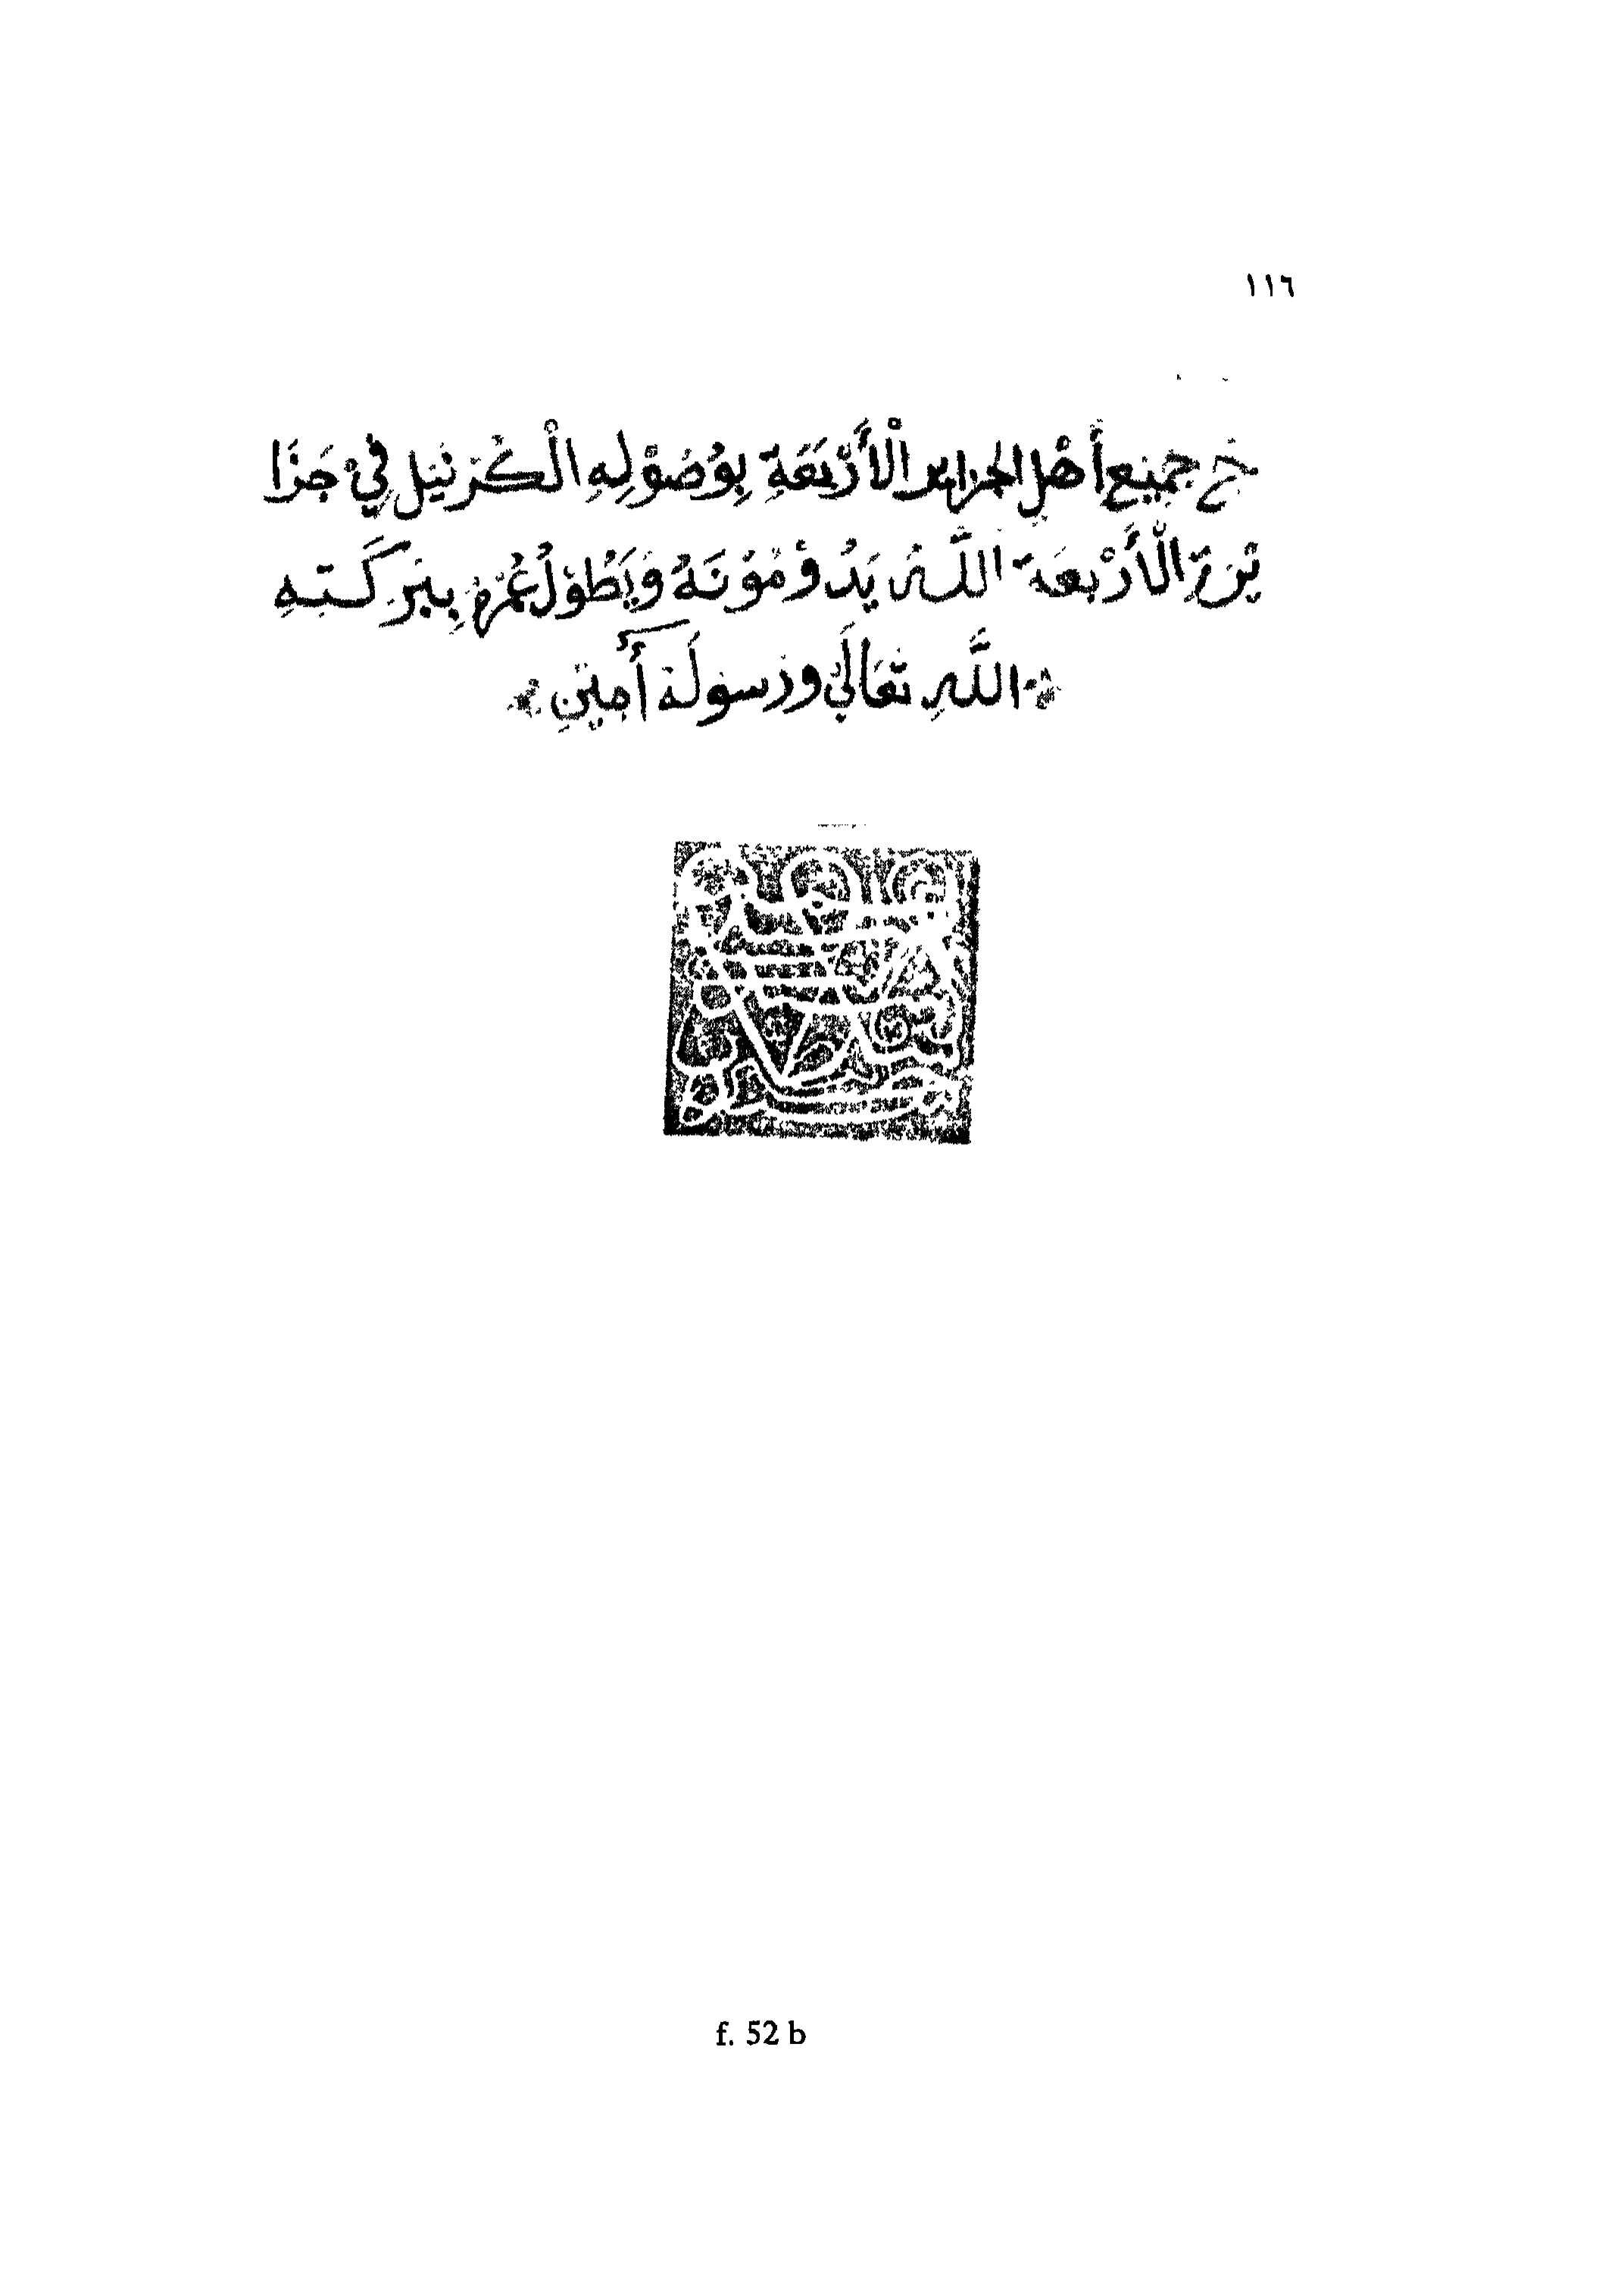 ١١٦
خ جميع أَهْلِ الجزاير الْأَرْبَعَةِ بِوُصُوْلِهِ الْكُرْنَيْل فِيْ جَزَا
يْرَةِ الْأَرْبَعَة اللَّهُ يَدُوْمُوْنَهُ وَيَطُوْلُ عُمْرُهُ بِبَرَكَتِهِ
اللَّهِ تَعَالَى وَرَسولَهُ أَمِيْنِ
f. 52 b